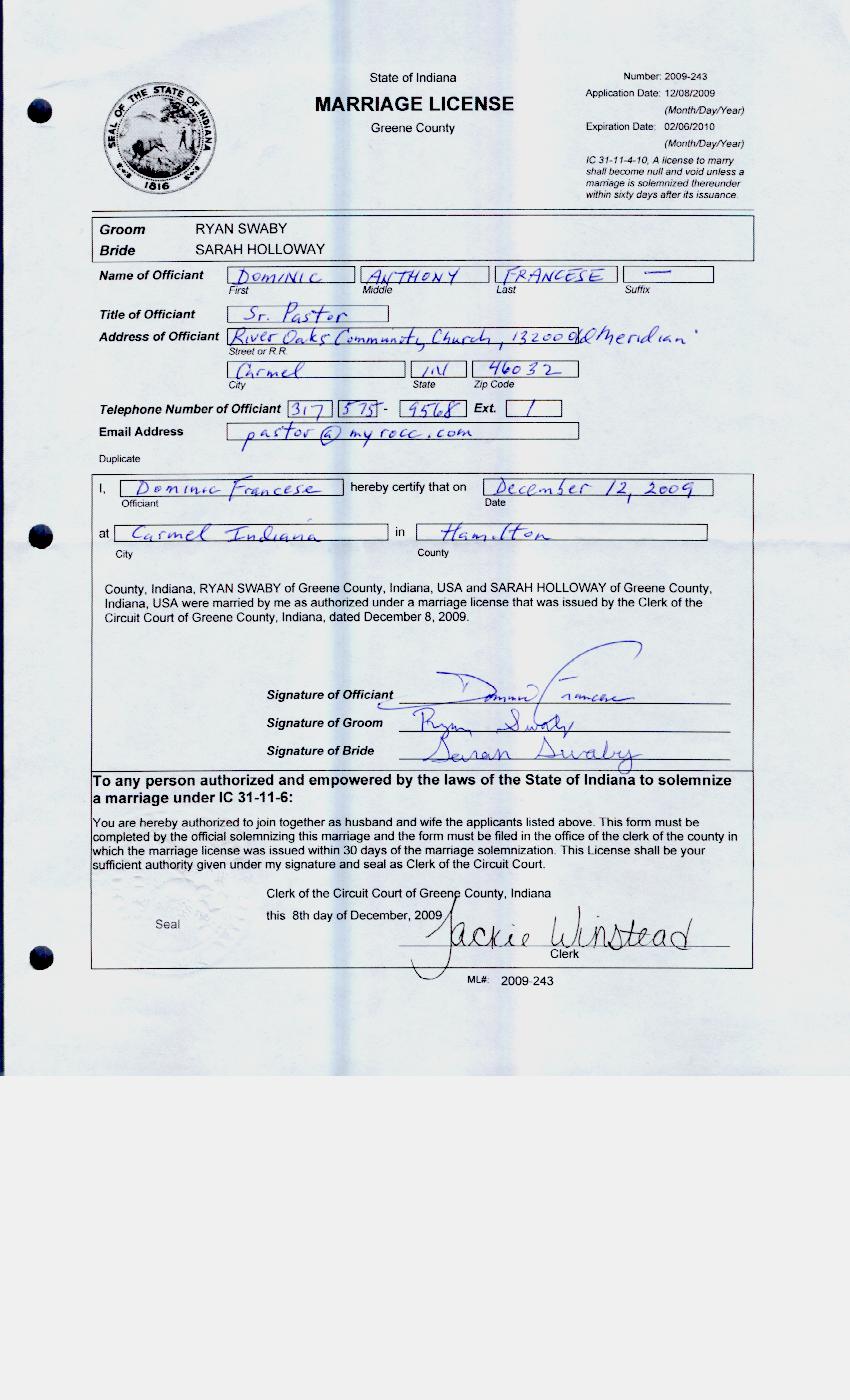 State of Indiana
MARRIAGE LICENSE
Greene County
Number: 2009-243
Application Date: 12/08/2009
(Month/Day/Year)
Expiration Date: 02/06/2010
(Month/Day/Year)
IC 31-11-4-10, A license to marry
shall become null and void unless a
marriage is solemnized thereunder
within sixty days after its issuance.
SEAL OF THE STATE OF INDIANA
1816
Groom RYAN SWABY
Bride SARAH HOLLOWAY
Name of Officiant DOMINIC ANTHONY FRANCESE —
First Middle Last Suffix
Title of Officiant Sr. Pastor
Address of Officiant River Oaks Community Church, 13200 Old Meridian
Street or R.R.
Carmel IN 46032
City State Zip Code
Telephone Number of Officiant 317 575 - 9568 Ext. /
Email Address pastor@myrocc.com
Duplicate
I, Dominic Francese hereby certify that on December 12, 2009
Officiant Date
at Carmel Indiana in Hamilton
City County
County, Indiana, RYAN SWABY of Greene County, Indiana, USA and SARAH HOLLOWAY of Greene County,
Indiana, USA were married by me as authorized under a marriage license that was issued by the Clerk of the
Circuit Court of Greene County, Indiana, dated December 8, 2009.
Signature of Officiant Dominic Francese
Signature of Groom Ryan Swaby
Signature of Bride Sarah Swaby
To any person authorized and empowered by the laws of the State of Indiana to solemnize
a marriage under IC 31-11-6:
You are hereby authorized to join together as husband and wife the applicants listed above. This form must be
completed by the official solemnizing this marriage and the form must be filed in the office of the clerk of the county in
which the marriage license was issued within 30 days of the marriage solemnization. This License shall be your
sufficient authority given under my signature and seal as Clerk of the Circuit Court.
Clerk of the Circuit Court of Greene County, Indiana
this 8th day of December, 2009
Seal
Jackie Winstead
Clerk
ML#: 2009-243